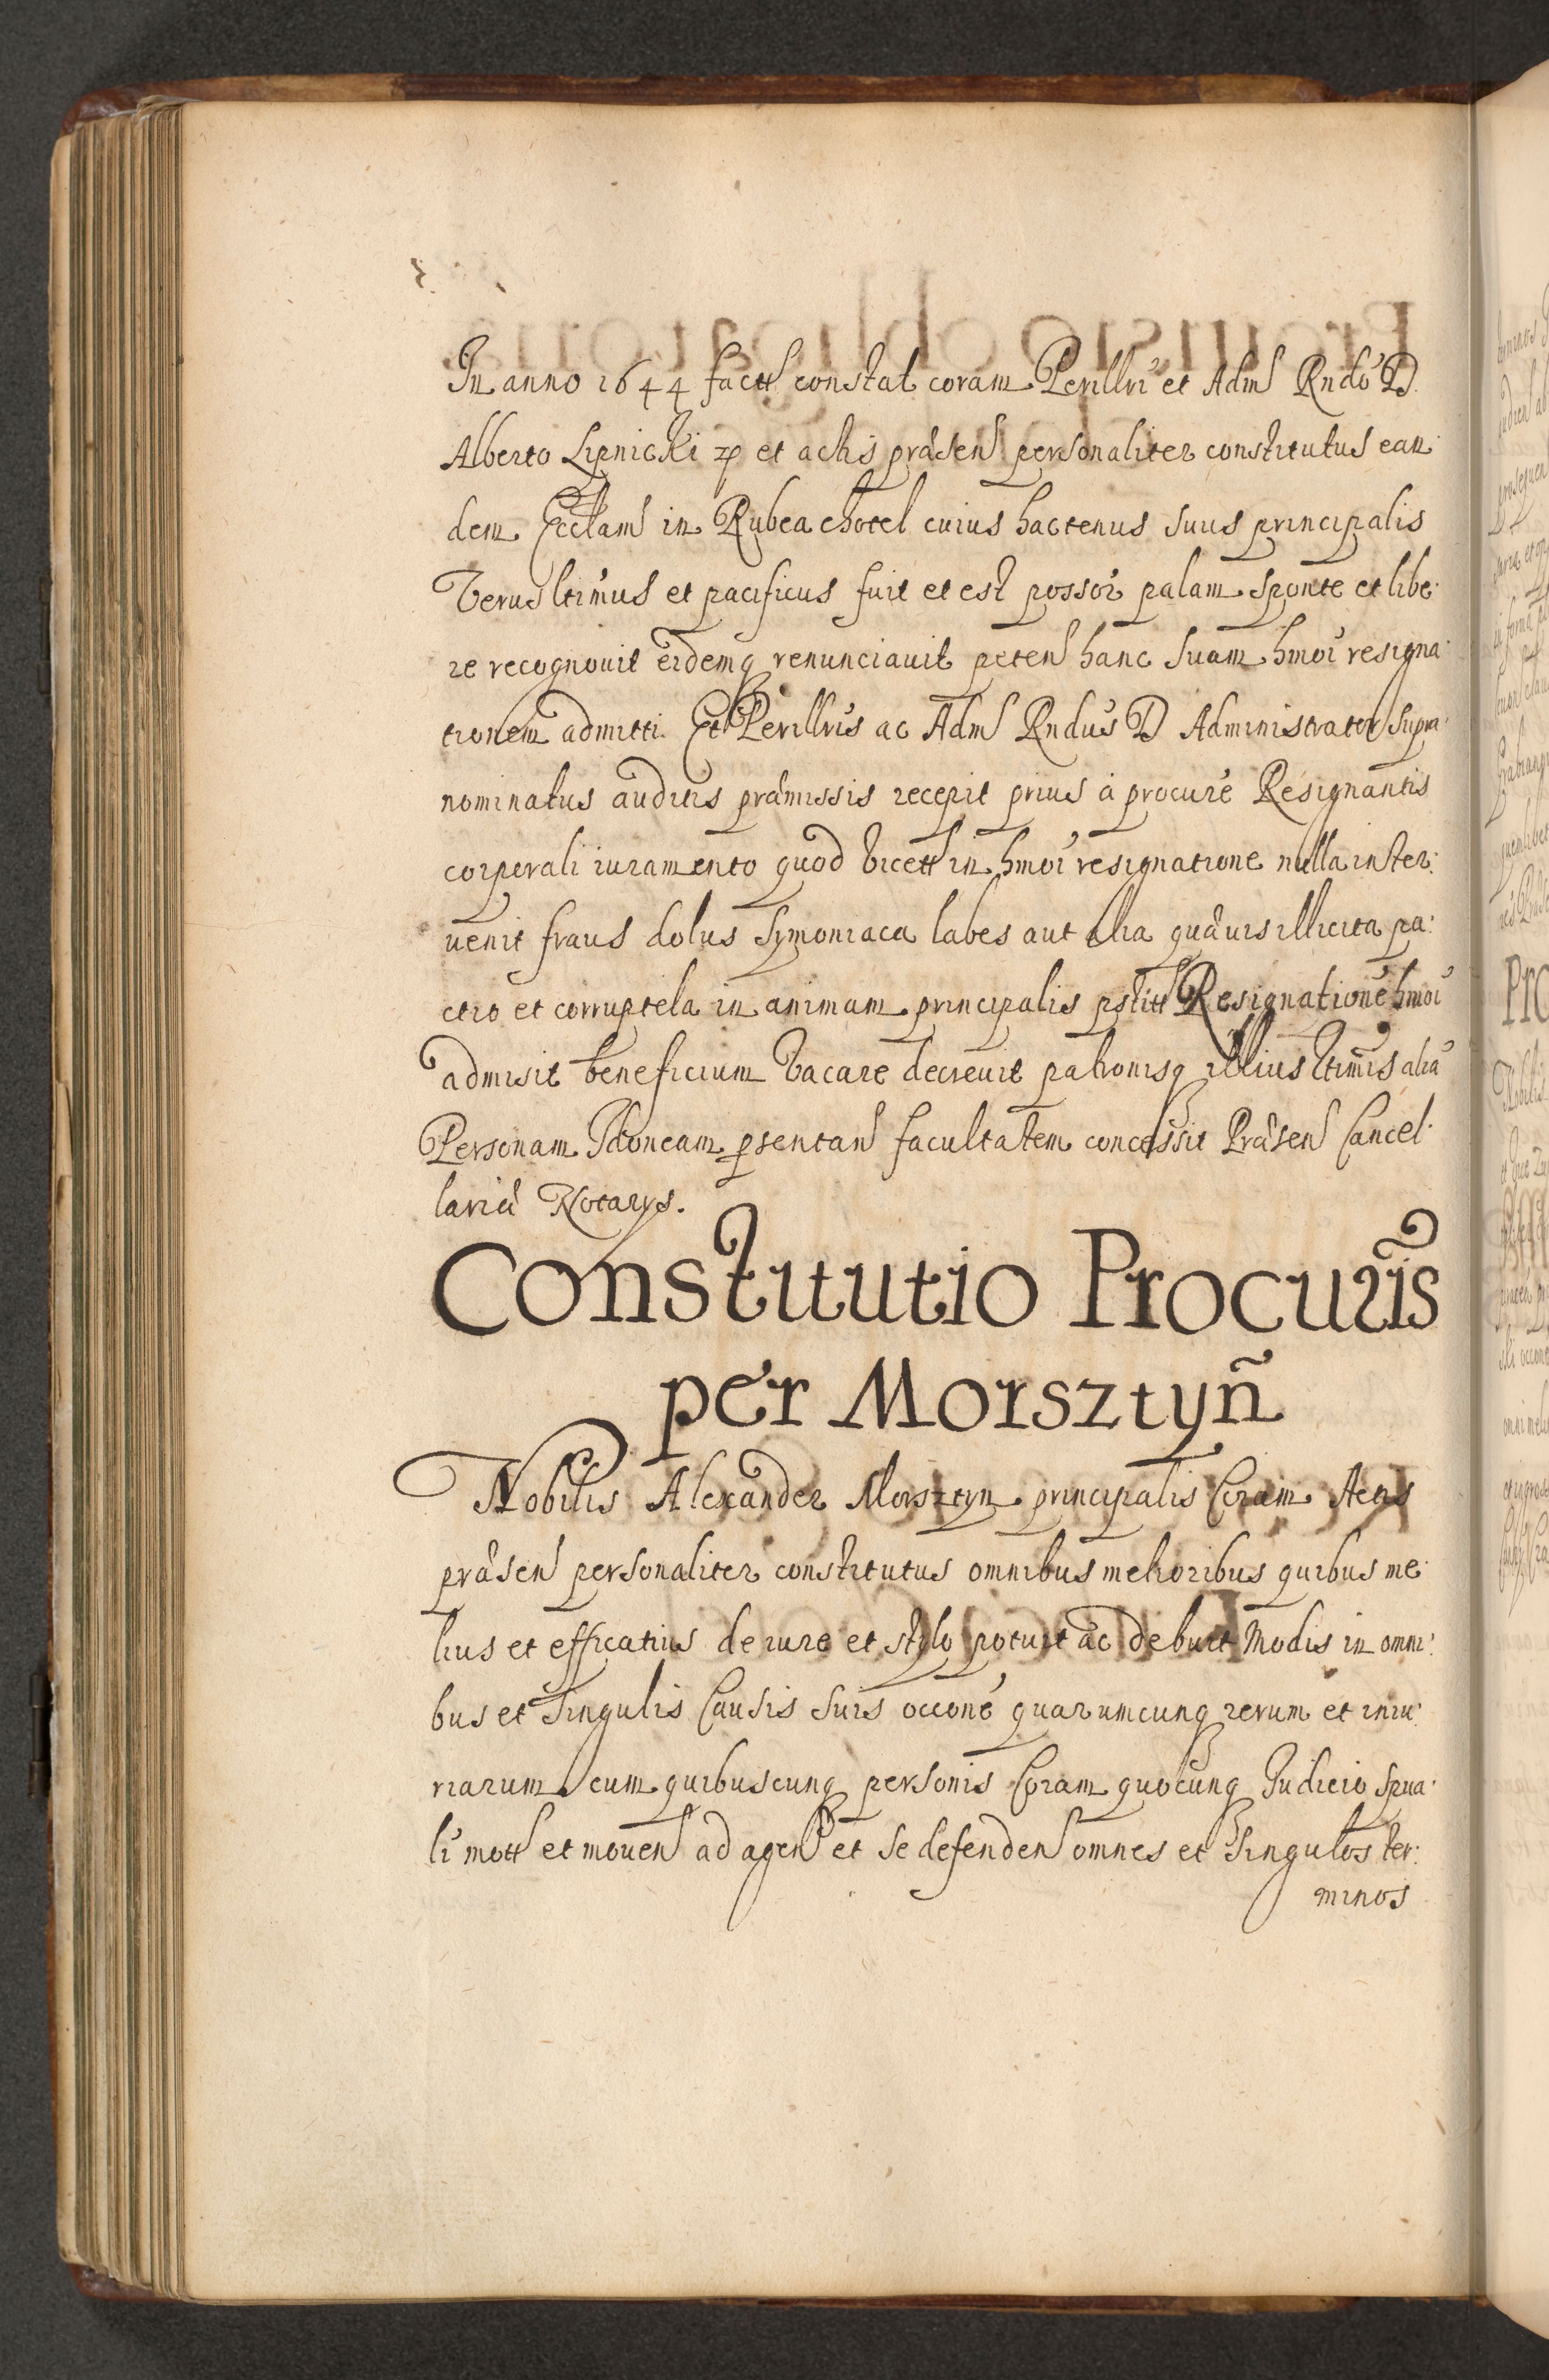 In anno 1644 factt constat coram Perillri et Adm Rndo D
Alberto Lipnicki et actis præsen personaliter constitutus ean:
dem Ecclam in Rubea chotel cuius hactenus suus principalis
Verus ltimus et pacificus fuit et est possor palam sponte et libe:
re recognouit eidemq renunciauit peten hanc suam hmoi resigna:
tionem admitti. Et Perillris ac Adm Rndus D Administrator supra:
nominatus auditis præmissis recepit prius à procure Resignantis
corporali iuramento quod vicett in hmoi resignatione nulla inter:
uenit fraus dolus symoniaca labes aut alia quæuis illicita pa:
ctio et corruptela in animam principalis pstitt Resignatione hmoi
admisit beneficium vacare decreuit patronisq illius ltimis alia
Personam Idoneam psentan facultatem concessit Præsen Cancel:
lariæ Notarys.
Constitutio Procuris
per Morsztyn
Nobilis Alexander Morsztyn principalis Coram Actis
præsen personaliter constitutus omnibus melioribus quibus me:
lius et efficatius de iure et stylo potuit ac debuit modis in omni:
bus et singulis Causis suis occone quarumcunq rerum et iniu:
riarum cum quibuscunq personis Coram quocunq Iudicio spua:
li mott et mouen ad agen et se defenden omnes et singulos ter:
minos